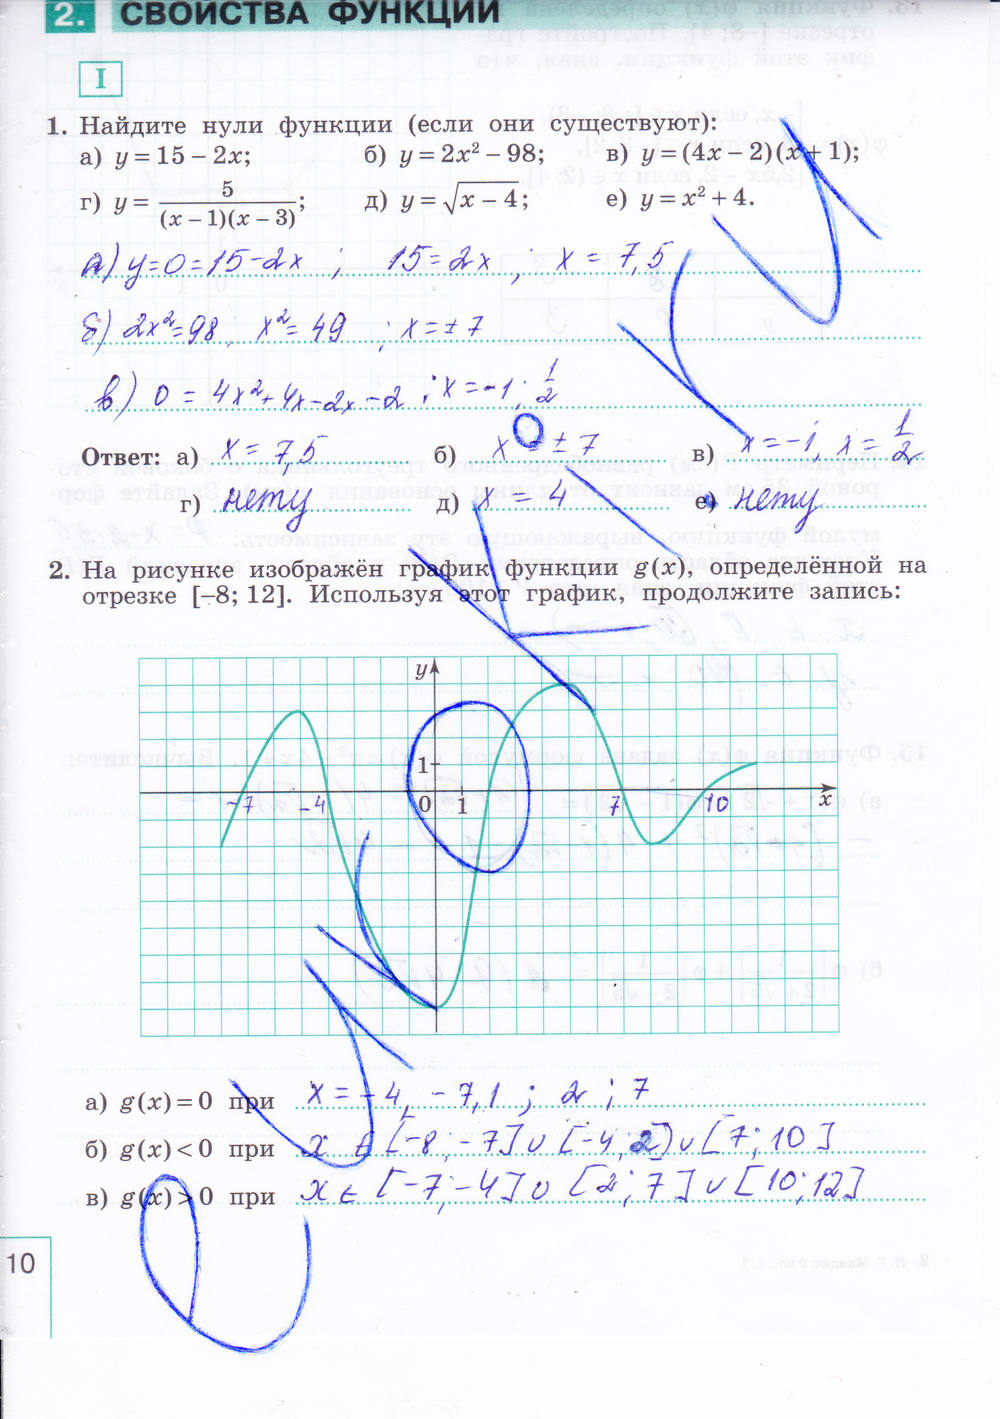 2. СВОЙСТВА ФУНКЦИЙ
I
1. Найдите нули функции (если они существуют):
а) y = 15 − 2x; б) y = 2x² − 98; в) y = (4x − 2)(x + 1);
г) y = 5/((x − 1)(x − 3)); д) y = √(x − 4); е) y = x² + 4.
а) y=0=15−2x ; 15=2x , x = 7,5
б) 2x²=98, x²=49 ; x=±7
в) 0 = 4x²+4x−2x−2 ; x=−1; 1/2
Ответ: а) x = 7,5 б) x = ±7 в) x=−1, x=1/2
г) нету д) x = 4 е) нету
2. На рисунке изображён график функции g(x), определённой на
отрезке [−8; 12]. Используя этот график, продолжите запись:
y
1
−7 −4 0 1 7 10 x
а) g(x) = 0 при x = −4, −7,1 ; 2 ; 7
б) g(x) < 0 при x ∈ [−8; −7] ∪ [−4; 2) ∪ [7; 10]
в) g(x) > 0 при x ∈ [−7; −4] ∪ [2; 7] ∪ [10; 12]
10